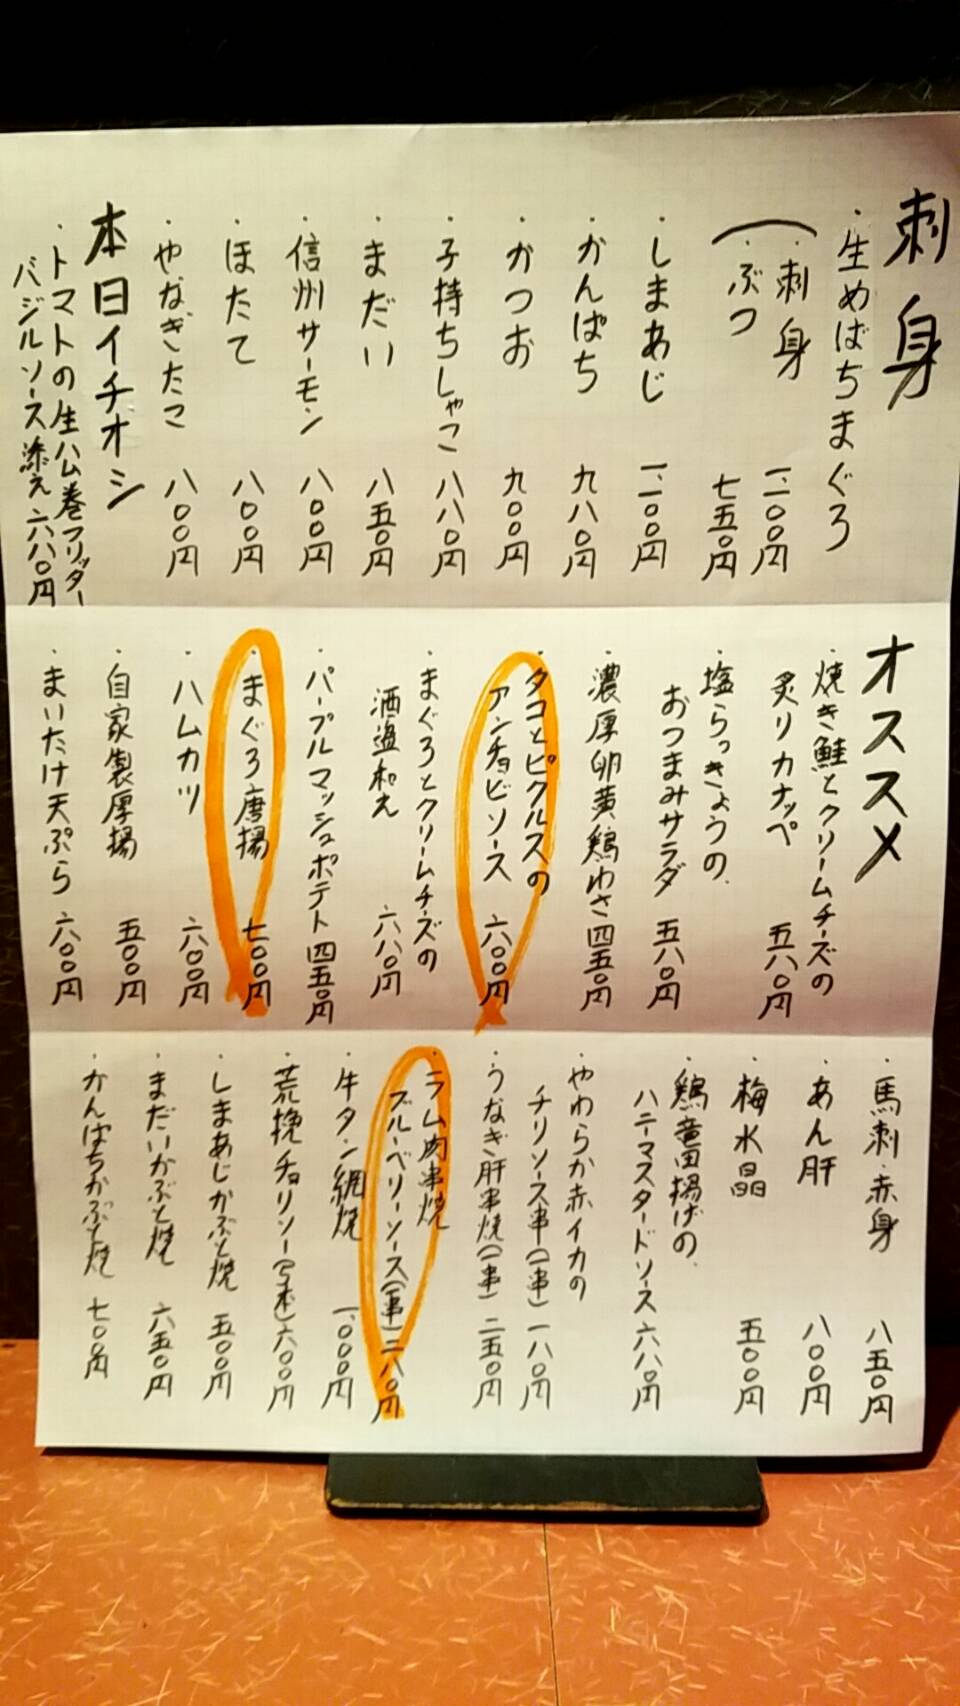 刺身
・生めばちまぐろ
・刺身 一、一〇〇円
・ぶつ 七五〇円
・しまあじ 一、一〇〇円
・かんぱち 九八〇円
・かつお 九〇〇円
・子持ちしゃこ 八八〇円
・まだい 八五〇円
・信州サーモン 八〇〇円
・ほたて 八〇〇円
・やなぎたこ 八〇〇円
本日イチオシ
・トマトの生ハム巻フリッター
バジルソース添え 六八〇円
オススメ
・焼き鮭とクリームチーズの
炙りカナッペ 五八〇円
・塩らっきょうの、
おつまみサラダ 五八〇円
・濃厚卵黄鶏わさ 四五〇円
・タコとピクルスの
アンチョビソース 六〇〇円
・まぐろとクリームチーズの
酒盗和え 六八〇円
・パープルマッシュポテト 四五〇円
・まぐろ唐揚 七〇〇円
・ハムカツ 六〇〇円
・自家製厚揚 五〇〇円
・まいたけ天ぷら 六〇〇円
・馬刺・赤身 八五〇円
・あん肝 八〇〇円
・梅水晶 五〇〇円
・鶏竜田揚げの、
ハニーマスタードソース 六八〇円
・やわらか赤イカの
チリソース串(一串) 一八〇円
・うなぎ肝串焼(一串) 二五〇円
・ラム肉串焼
ブルーベリーソース(一串) 二八〇円
・牛タン網焼 一、〇〇〇円
・荒挽チョリソー(5本) 六〇〇円
・しまあじかぶと焼 五〇〇円
・まだいかぶと焼 六五〇円
・かんぱちかぶと焼 七〇〇円